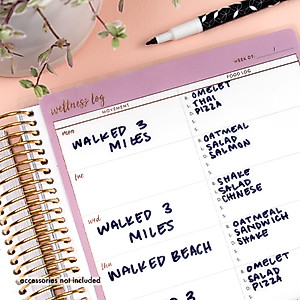 WEEK OF:
wellness log
MOVEMENT
FOOD LOG
mon
WALKED 3
MILES
B: OMELET
L: THAI
D: PIZZA
S:
tue
B: OATMEAL
L: SALAD
D: SALMON
S:
wed
WALKED 3
MILES
B: SHAKE
L: SALAD
D: CHINESE
S:
thu
WALKED BEACH
B: OATMEAL
L: SANDWICH
D: SHAKE
S:
WALKED 3
OMELET
SALAD
PIZZA
accessories not included